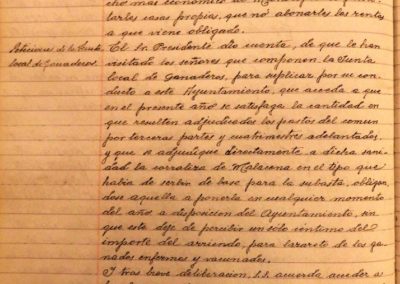 cho más económico
larles casas propias, que no abonarles las rentas
a que viene obligado.
Peticiones de la Junta
local de Ganaderos.
El Sr. Presidente dio cuenta, de que le han
visitado los señores que componen la Junta
local de Ganaderos, para suplicar por su con-
ducto a este Ayuntamiento, que acceda a que
en el presente año se satisfaga la cantidad en
que resulten adjudicados los pastos del comun
por terceras partes y cuatrimestres adelantados,
y que se adjudique directamente a dicha enti-
dad la corraliza de en el tipo que
habia de servir de base para la subasta, obligan
dose aquella a ponerla en cualquier momento
del año a disposicion del Ayuntamiento, sin
que este deje de percibir un solo centimo del
importe del arriendo, para lazareto de los ga-
nados enfermos y vacunados.
Y tras breve deliberacion, S.S. acuerda acceder a